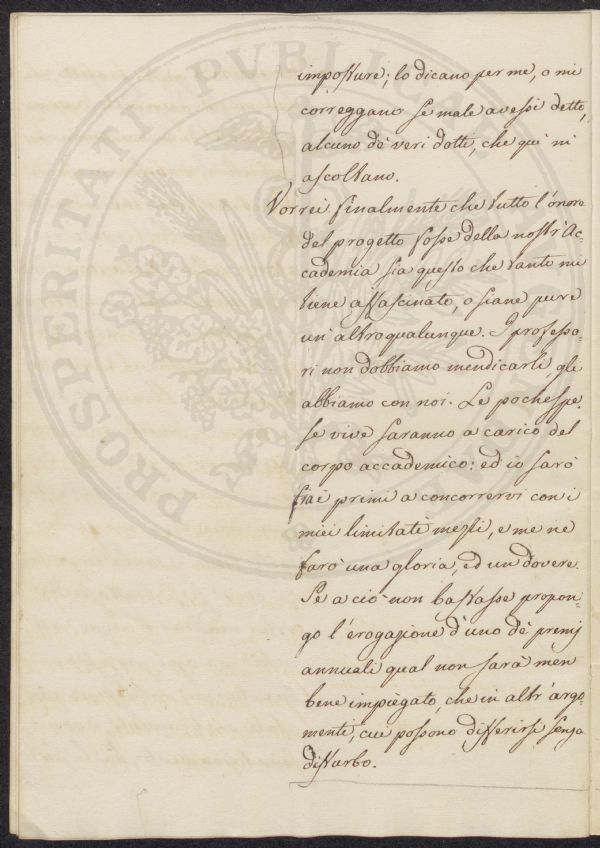 imposture; lo dicano per me, o mi
correggano se male avessi detto,
alcuno de' veri dotti, che quì mi
ascoltano.
Vorrei finalmente che tutto l'onore
del progetto fosse della nostr'Ac-
cademia sia questo che tanto mi
tiene affascinato, o siane pure
un'altro qualunque. I professo-
ri non dobbiamo mendicarli, gli
abbiamo con noi. Le poche spe-
se vive saranno a carico del
corpo accademico: ed io sarò
fra i primi a concorrervi con i
miei limitati mezzi, e me ne
farò una gloria, ed un dovere.
Se a ciò non bastasse propon-
go l'erogazione d'uno de' premj
annuali qual non sarà men
bene impiegato, che in altr'argo-
menti, cui possono differirsi senza
disturbo.
PROSPERITATI PUBLICAE